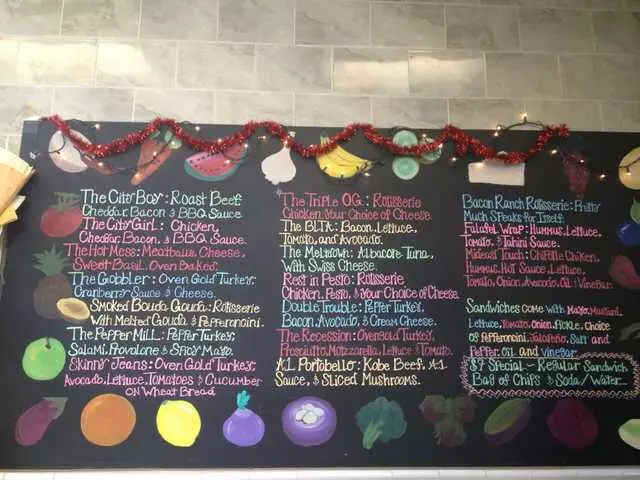 The City Boy: Roast Beef
Cheddar, Bacon & BBQ Sauce
The City Girl: Chicken,
Cheddar, Bacon, & BBQ Sauce.
The Hot Mess: Meatballs, Cheese,
Sweet Basil. Oven Baked.
The Gobbler: Oven Gold Turkey,
Cranberry Sauce & Cheese.
Smoked Gouda: Rotisserie
With Melted Gouda & Pepperoncini.
The Pepper Mill: Pepper Turkey,
Salami, Provolone & Spicy Mayo.
Skinny Jeans: Oven Gold Turkey,
Avocado, Lettuce, Tomatoes & Cucumber
on Wheat Bread
The Triple OG: Rotisserie
Chicken, Your Choice of Cheese.
The BLTA: Bacon, Lettuce,
Tomato, and Avocado.
The Meltdown: Albacore Tuna,
With Swiss Cheese.
Rest in Pesto: Rotisserie
Chicken, Pesto, & Your Choice of Cheese.
Double Trouble: Pepper Turkey,
Bacon, Avocado, & Cream Cheese.
The Recession: Oven Gold Turkey,
Prosciutto, Motzzarella, Lettuce & Tomato.
A.1 Portobello: Kobe Beef, A.1
Sauce, & Sliced Mushrooms.
Bacon Ranch Rotisserie: Pretty
Much Speaks for Itself.
Falafel Wrap: Hummus, Lettuce,
Tomato, & Tahini Sauce.
Mideast Touch: Chicken,
Hummus, Hot Sauce, Lettuce,
Tomato, Onion, Avocado, Oil & Vinegar.
Sandwiches come with Mayo, Mustard,
Lettuce, Tomato, Onion, Pickle, Choice
of Pepperoncini, Jalapeño, Salt and
Pepper, Oil and vinegar.
$7 Special ~ Regular Sandwich
Bag of Chips & Soda/Water